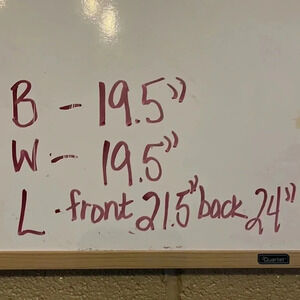 B - 19.5"
W - 19.5"
L - front 21.5" back 24"
Quartet